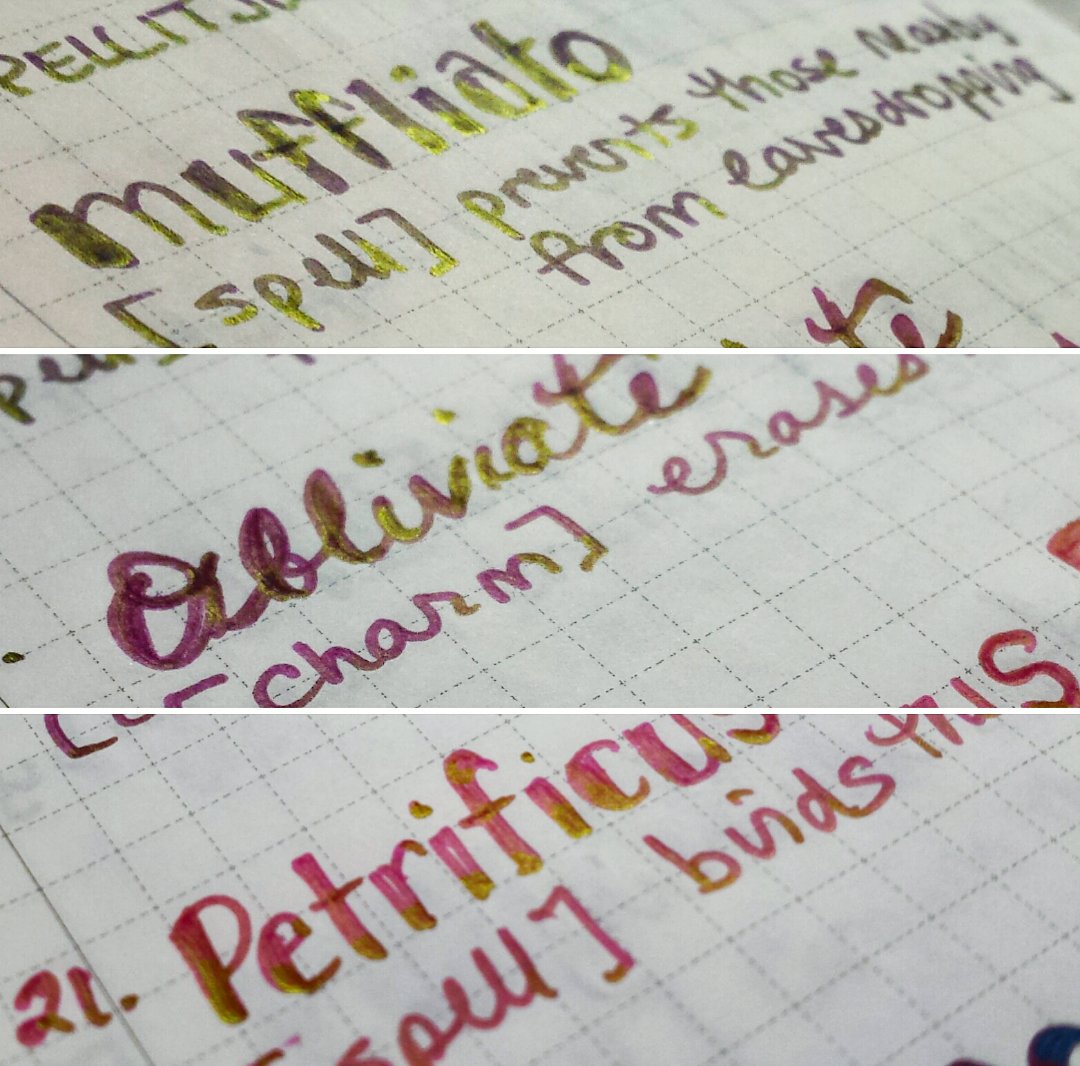 muffliato
[spell] prevents those nearby
from eavesdropping
Obliviate
[charm] erases
21. Petrificus
[spell] binds this